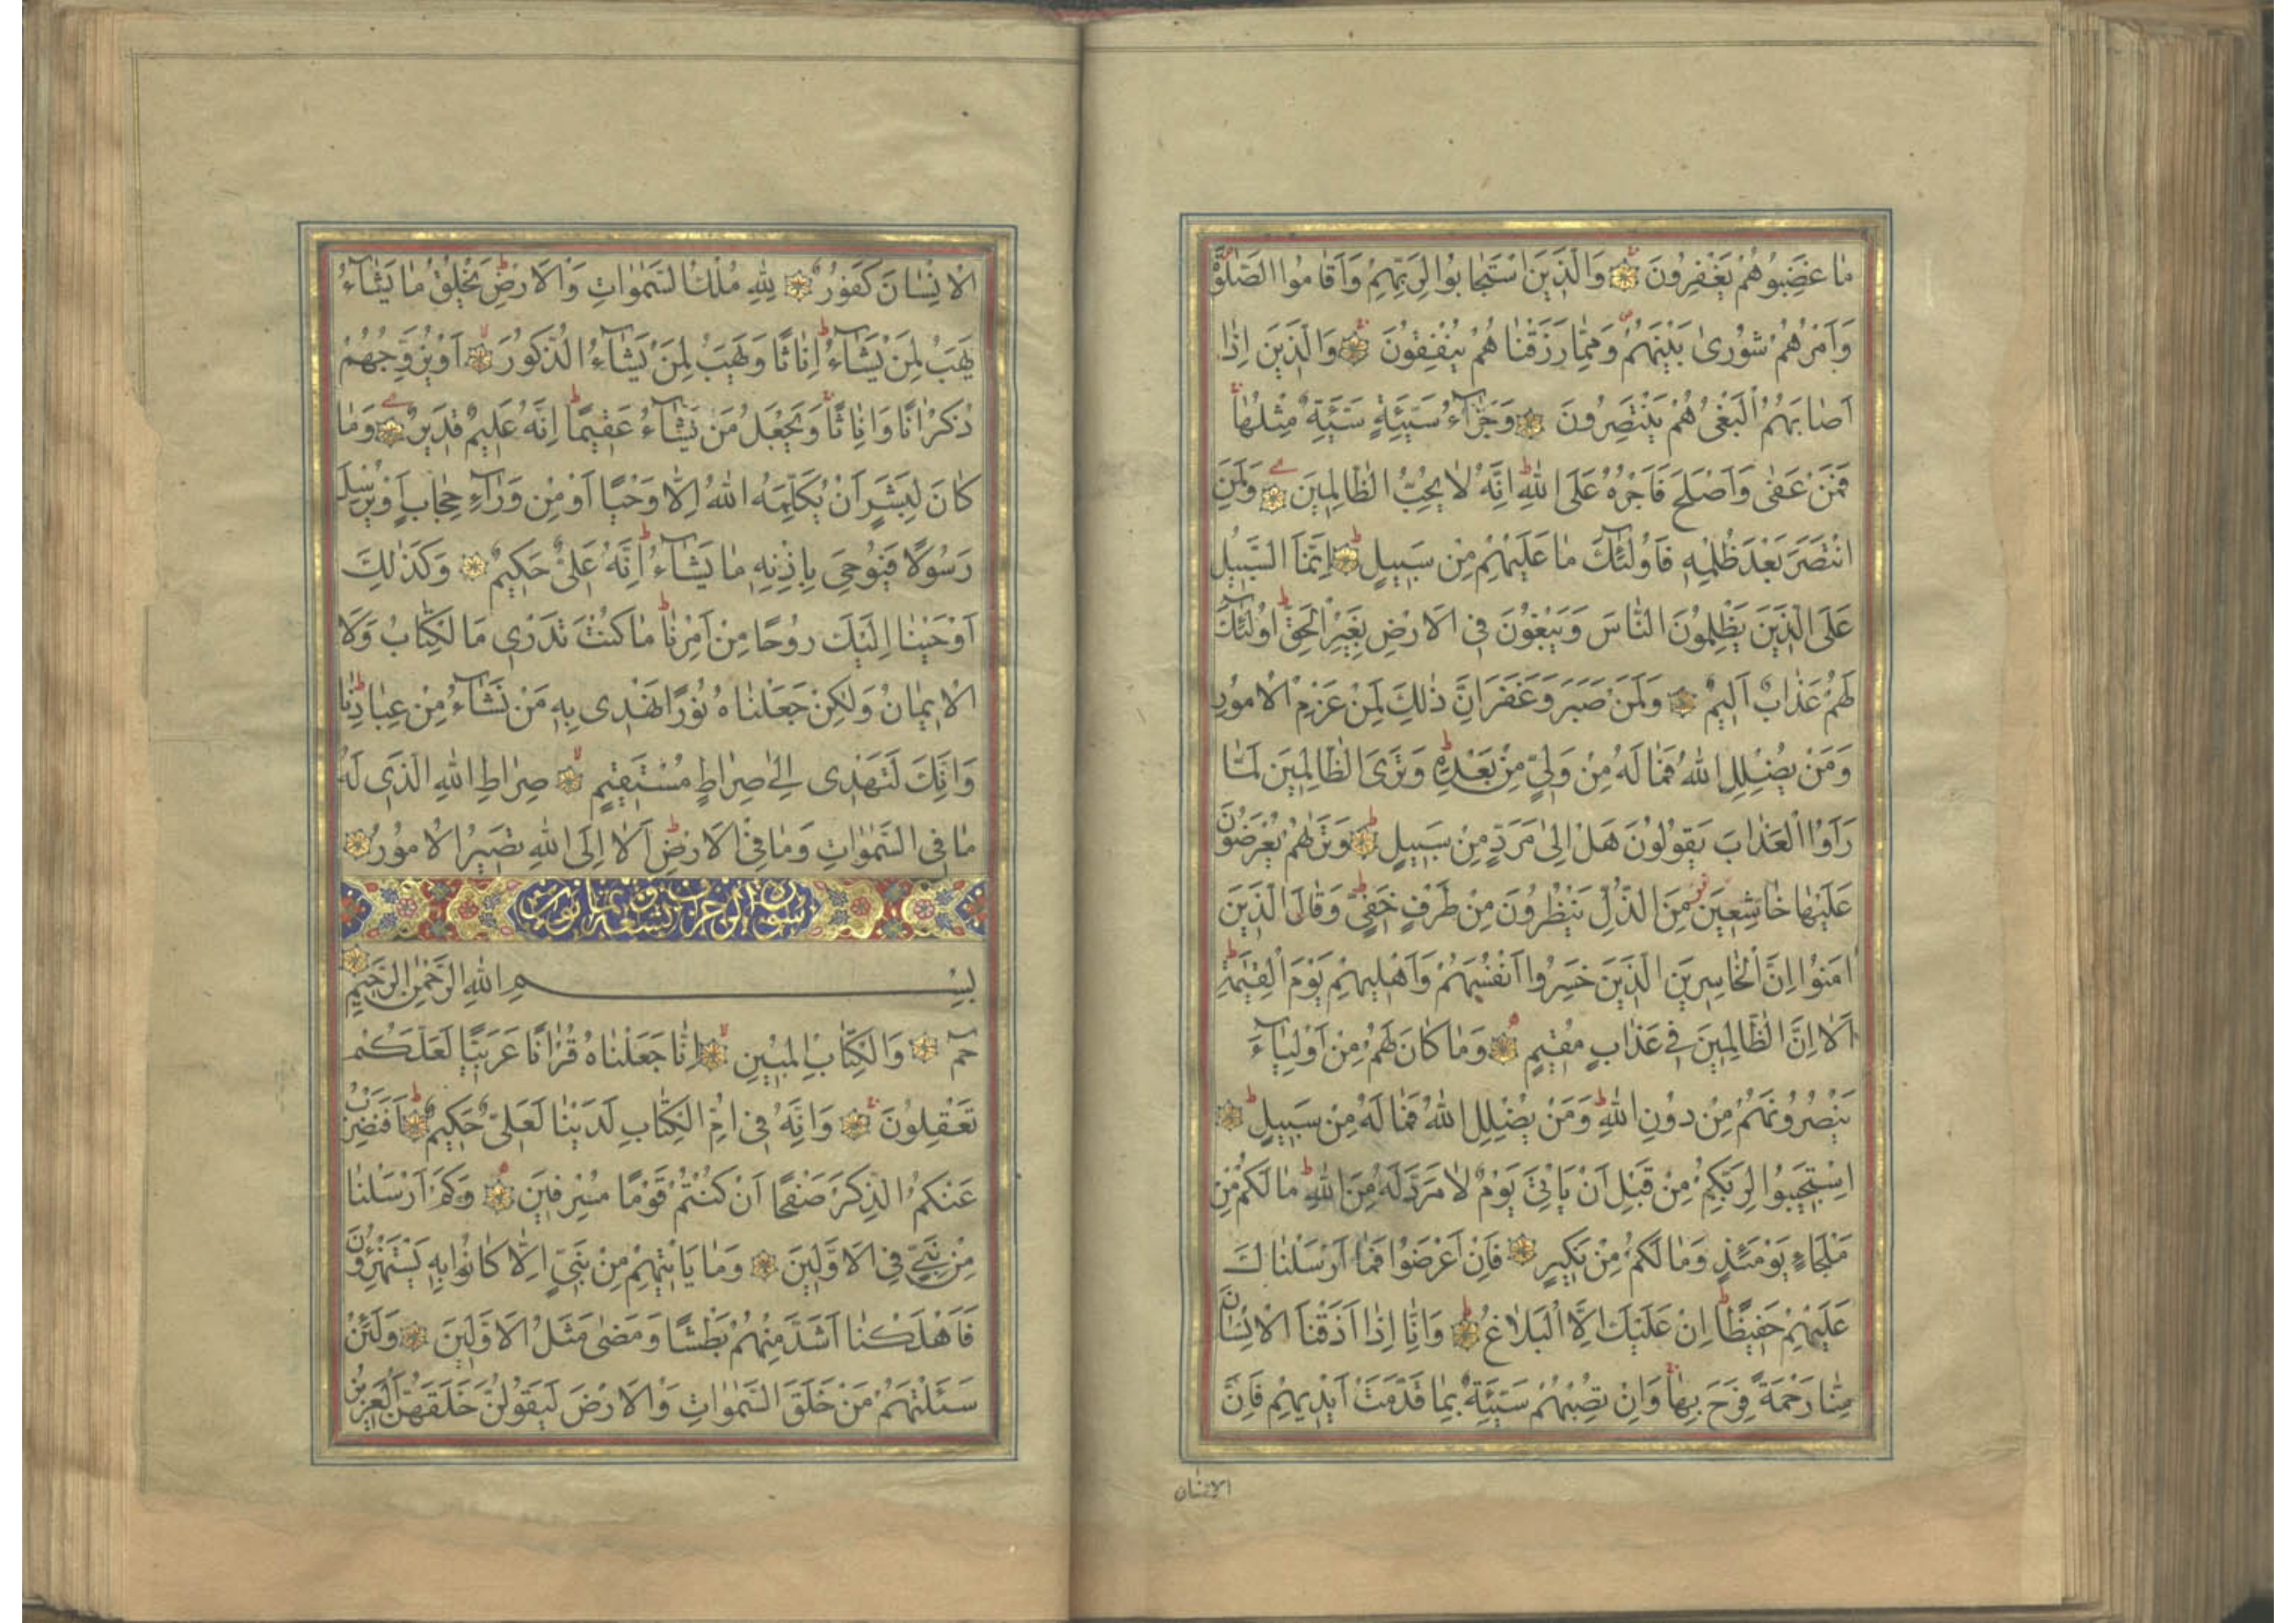 مَا غَضِبُوا هُمْ يَغْفِرُونَ وَالَّذِينَ اسْتَجَابُوا لِرَبِّهِمْ وَاَقَامُوا الصَّلٰوةَ
وَاَمْرُهُمْ شُورٰى بَيْنَهُمْ وَمِمَّا رَزَقْنَا هُمْ يُنْفِقُونَ وَالَّذِينَ اِذَا
اَصَابَهُمُ الْبَغْىُ هُمْ يَنْتَصِرُونَ وَجَزَآءُ سَيِّئَةٍ سَيِّئَةٌ مِثْلُهَا
فَمَنْ عَفٰى وَاَصْلَحَ فَاَجْرُهُ عَلَى اللهِ اِنَّهُ لَا يُحِبُّ الظَّالِمِينَ وَلَمَنِ
انْتَصَرَ بَعْدَ ظُلْمِهِ فَاُولٰئِكَ مَا عَلَيْهِمْ مِنْ سَبِيلٍ اِنَّمَا السَّبِيلُ
عَلَى الَّذِينَ يَظْلِمُونَ النَّاسَ وَيَبْغُونَ فِى الْاَرْضِ بِغَيْرِ الْحَقِّ اُولٰئِكَ
لَهُمْ عَذَابٌ اَلِيمٌ وَلَمَنْ صَبَرَ وَغَفَرَ اِنَّ ذٰلِكَ لَمِنْ عَزْمِ الْاُمُورِ
وَمَنْ يُضْلِلِ اللهُ فَمَا لَهُ مِنْ وَلِيٍّ مِنْ بَعْدِهِ وَتَرَى الظَّالِمِينَ لَمَّا
رَاَوُا الْعَذَابَ يَقُولُونَ هَلْ اِلٰى مَرَدٍّ مِنْ سَبِيلٍ وَتَرٰهُمْ يُعْرَضُونَ
عَلَيْهَا خَاشِعِينَ مِنَ الذُّلِّ يَنْظُرُونَ مِنْ طَرْفٍ خَفِيٍّ وَقَالَ الَّذِينَ
اٰمَنُوا اِنَّ الْخَاسِرِينَ الَّذِينَ خَسِرُوا اَنْفُسَهُمْ وَاَهْلِيهِمْ يَوْمَ الْقِيٰمَةِ
اَلَا اِنَّ الظَّالِمِينَ فِى عَذَابٍ مُقِيمٍ وَمَا كَانَ لَهُمْ مِنْ اَوْلِيَآءَ
يَنْصُرُونَهُمْ مِنْ دُونِ اللهِ وَمَنْ يُضْلِلِ اللهُ فَمَا لَهُ مِنْ سَبِيلٍ
اِسْتَجِيبُوا لِرَبِّكُمْ مِنْ قَبْلِ اَنْ يَاْتِىَ يَوْمٌ لَا مَرَدَّ لَهُ مِنَ اللهِ مَا لَكُمْ مِنْ
مَلْجَاءٍ يَوْمَئِذٍ وَمَا لَكُمْ مِنْ نَكِيرٍ فَاِنْ اَعْرَضُوا فَمَا اَرْسَلْنَاكَ
عَلَيْهِمْ حَفِيظًا اِنْ عَلَيْكَ اِلَّا الْبَلَاغُ وَاِنَّا اِذَا اَذَقْنَا الْاِنْسَانَ
مِنَّا رَحْمَةً فَرِحَ بِهَا وَاِنْ تُصِبْهُمْ سَيِّئَةٌ بِمَا قَدَّمَتْ اَيْدِيهِمْ فَاِنَّ
الانسان
الْاِنْسَانَ كَفُورٌ لِلّٰهِ مُلْكُ السَّمٰوَاتِ وَالْاَرْضِ يَخْلُقُ مَا يَشَآءُ
يَهَبُ لِمَنْ يَشَآءُ اِنَاثًا وَيَهَبُ لِمَنْ يَشَآءُ الذُّكُورَ اَوْ يُزَوِّجُهُمْ
ذُكْرَانًا وَاِنَاثًا وَيَجْعَلُ مَنْ يَشَآءُ عَقِيمًا اِنَّهُ عَلِيمٌ قَدِيرٌ وَمَا
كَانَ لِبَشَرٍ اَنْ يُكَلِّمَهُ اللهُ اِلَّا وَحْيًا اَوْ مِنْ وَرَآءِ حِجَابٍ اَوْ يُرْسِلَ
رَسُولًا فَيُوحِىَ بِاِذْنِهِ مَا يَشَآءُ اِنَّهُ عَلِىٌّ حَكِيمٌ وَكَذٰلِكَ
اَوْحَيْنَا اِلَيْكَ رُوحًا مِنْ اَمْرِنَا مَا كُنْتَ تَدْرِى مَا الْكِتَابُ وَلَا
الْاِيمَانُ وَلٰكِنْ جَعَلْنَاهُ نُورًا نَهْدِى بِهِ مَنْ نَشَآءُ مِنْ عِبَادِنَا
وَاِنَّكَ لَتَهْدِى اِلٰى صِرَاطٍ مُسْتَقِيمٍ صِرَاطِ اللهِ الَّذِى لَهُ
مَا فِى السَّمٰوَاتِ وَمَا فِى الْاَرْضِ اَلَا اِلَى اللهِ تَصِيرُ الْاُمُورُ
سورة الزخرف تسع وثمانون آية
بِسْمِ اللهِ الرَّحْمٰنِ الرَّحِيمِ
حٰمٓ وَالْكِتَابِ الْمُبِينِ اِنَّا جَعَلْنَاهُ قُرْاٰنًا عَرَبِيًّا لَعَلَّكُمْ
تَعْقِلُونَ وَاِنَّهُ فِى اُمِّ الْكِتَابِ لَدَيْنَا لَعَلِىٌّ حَكِيمٌ اَفَنَضْرِبُ
عَنْكُمُ الذِّكْرَ صَفْحًا اَنْ كُنْتُمْ قَوْمًا مُسْرِفِينَ وَكَمْ اَرْسَلْنَا
مِنْ نَبِىٍّ فِى الْاَوَّلِينَ وَمَا يَاْتِيهِمْ مِنْ نَبِىٍّ اِلَّا كَانُوا بِهِ يَسْتَهْزِؤُنَ
فَاَهْلَكْنَا اَشَدَّ مِنْهُمْ بَطْشًا وَمَضٰى مَثَلُ الْاَوَّلِينَ وَلَئِنْ
سَئَلْتَهُمْ مَنْ خَلَقَ السَّمٰوَاتِ وَالْاَرْضَ لَيَقُولُنَّ خَلَقَهُنَّ الْعَزِيزُ